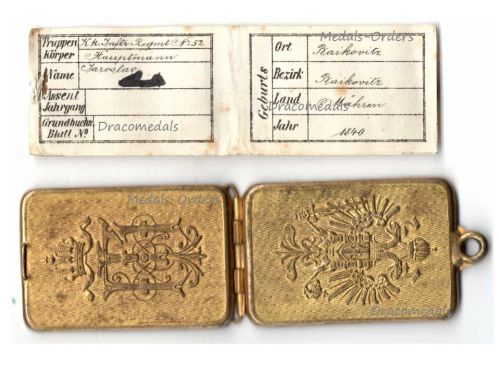 Truppen K.k. Inftr. Regmt No. 52.
Körper Hauptmann
Name Jaroslav
Assent
Jahrgang
Grundbuchs
Blatt No
Dracomedals
Medals-Orders
Geburts
Ort Raikovitz
Bezirk Raikovitz
Land Mähren
Dracomedals
Jahr 1840
Medals-Orders
Dracomedals